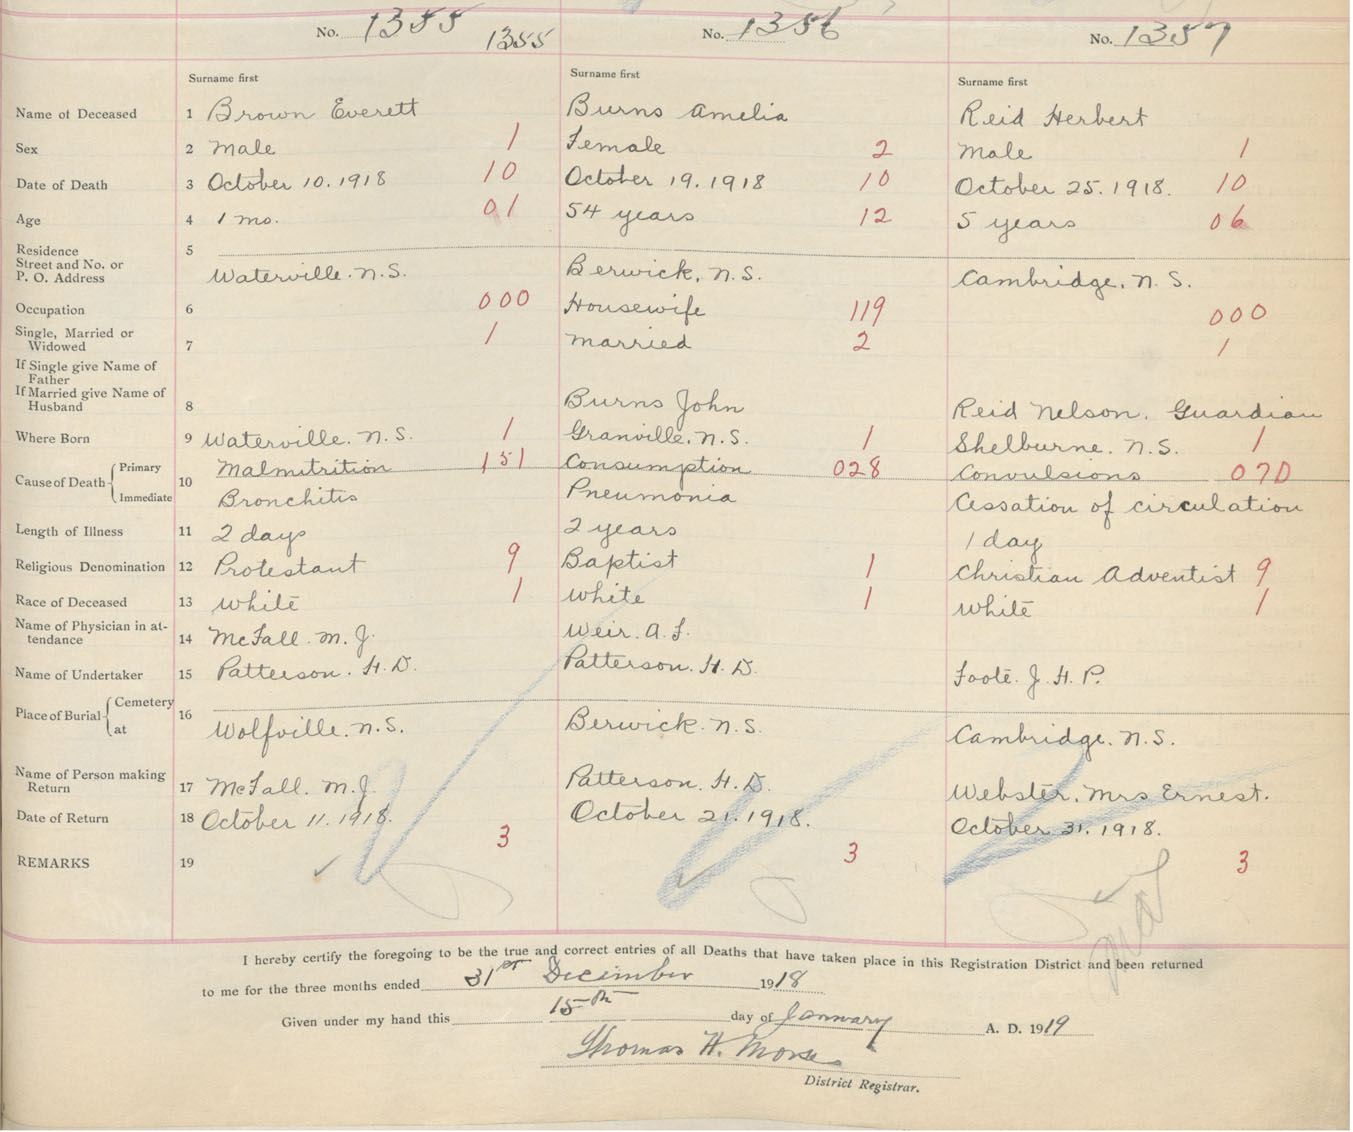 No. 1355 1355 No. 1356 No. 1357
Surname first Surname first Surname first
Name of Deceased 1 Brown Everett Burns Amelia Reid Herbert
Sex 2 Male 1 Female 2 Male 1
Date of Death 3 October 10. 1918 10 October 19. 1918 10 October 25. 1918. 10
Age 4 1 mo. 01 54 years 12 5 years 06
Residence 5
Street and No. or
P. O. Address Waterville. N.S. Berwick, N.S. Cambridge, N.S.
Occupation 6 000 Housewife 119 000
Single, Married or
Widowed 7 1 Married 2 1
If Single give Name of
Father
If Married give Name of
Husband 8 Burns John Reid Nelson. Guardian
Where Born 9 Waterville. N.S. 1 Granville. N.S. 1 Shelburne. N.S. 1
Cause of Death Primary 10 Malnutrition 151 Consumption 028 Convulsions 070
Immediate Bronchitis Pneumonia Cessation of circulation
Length of Illness 11 2 days 2 years 1 day
Religious Denomination 12 Protestant 9 Baptist 1 Christian Adventist 9
Race of Deceased 13 White 1 White 1 White 1
Name of Physician in at-
tendance 14 McFall. M.J. Weir. A.F.
Name of Undertaker 15 Patterson. H.D. Patterson. H.D. Foote. J.H.P.
Place of Burial Cemetery 16
at Wolfville. N.S. Berwick. N.S. Cambridge. N.S.
Name of Person making
Return 17 McFall. M.J. Patterson. H.D. Webster. Mrs Ernest.
Date of Return 18 October 11. 1918. October 21. 1918. October 31. 1918.
REMARKS 19 3 3 3
I hereby certify the foregoing to be the true and correct entries of all Deaths that have taken place in this Registration District and been returned
to me for the three months ended 31st December 1918
Given under my hand this 15th day of January A. D. 1919
Thomas H. Morse
District Registrar.